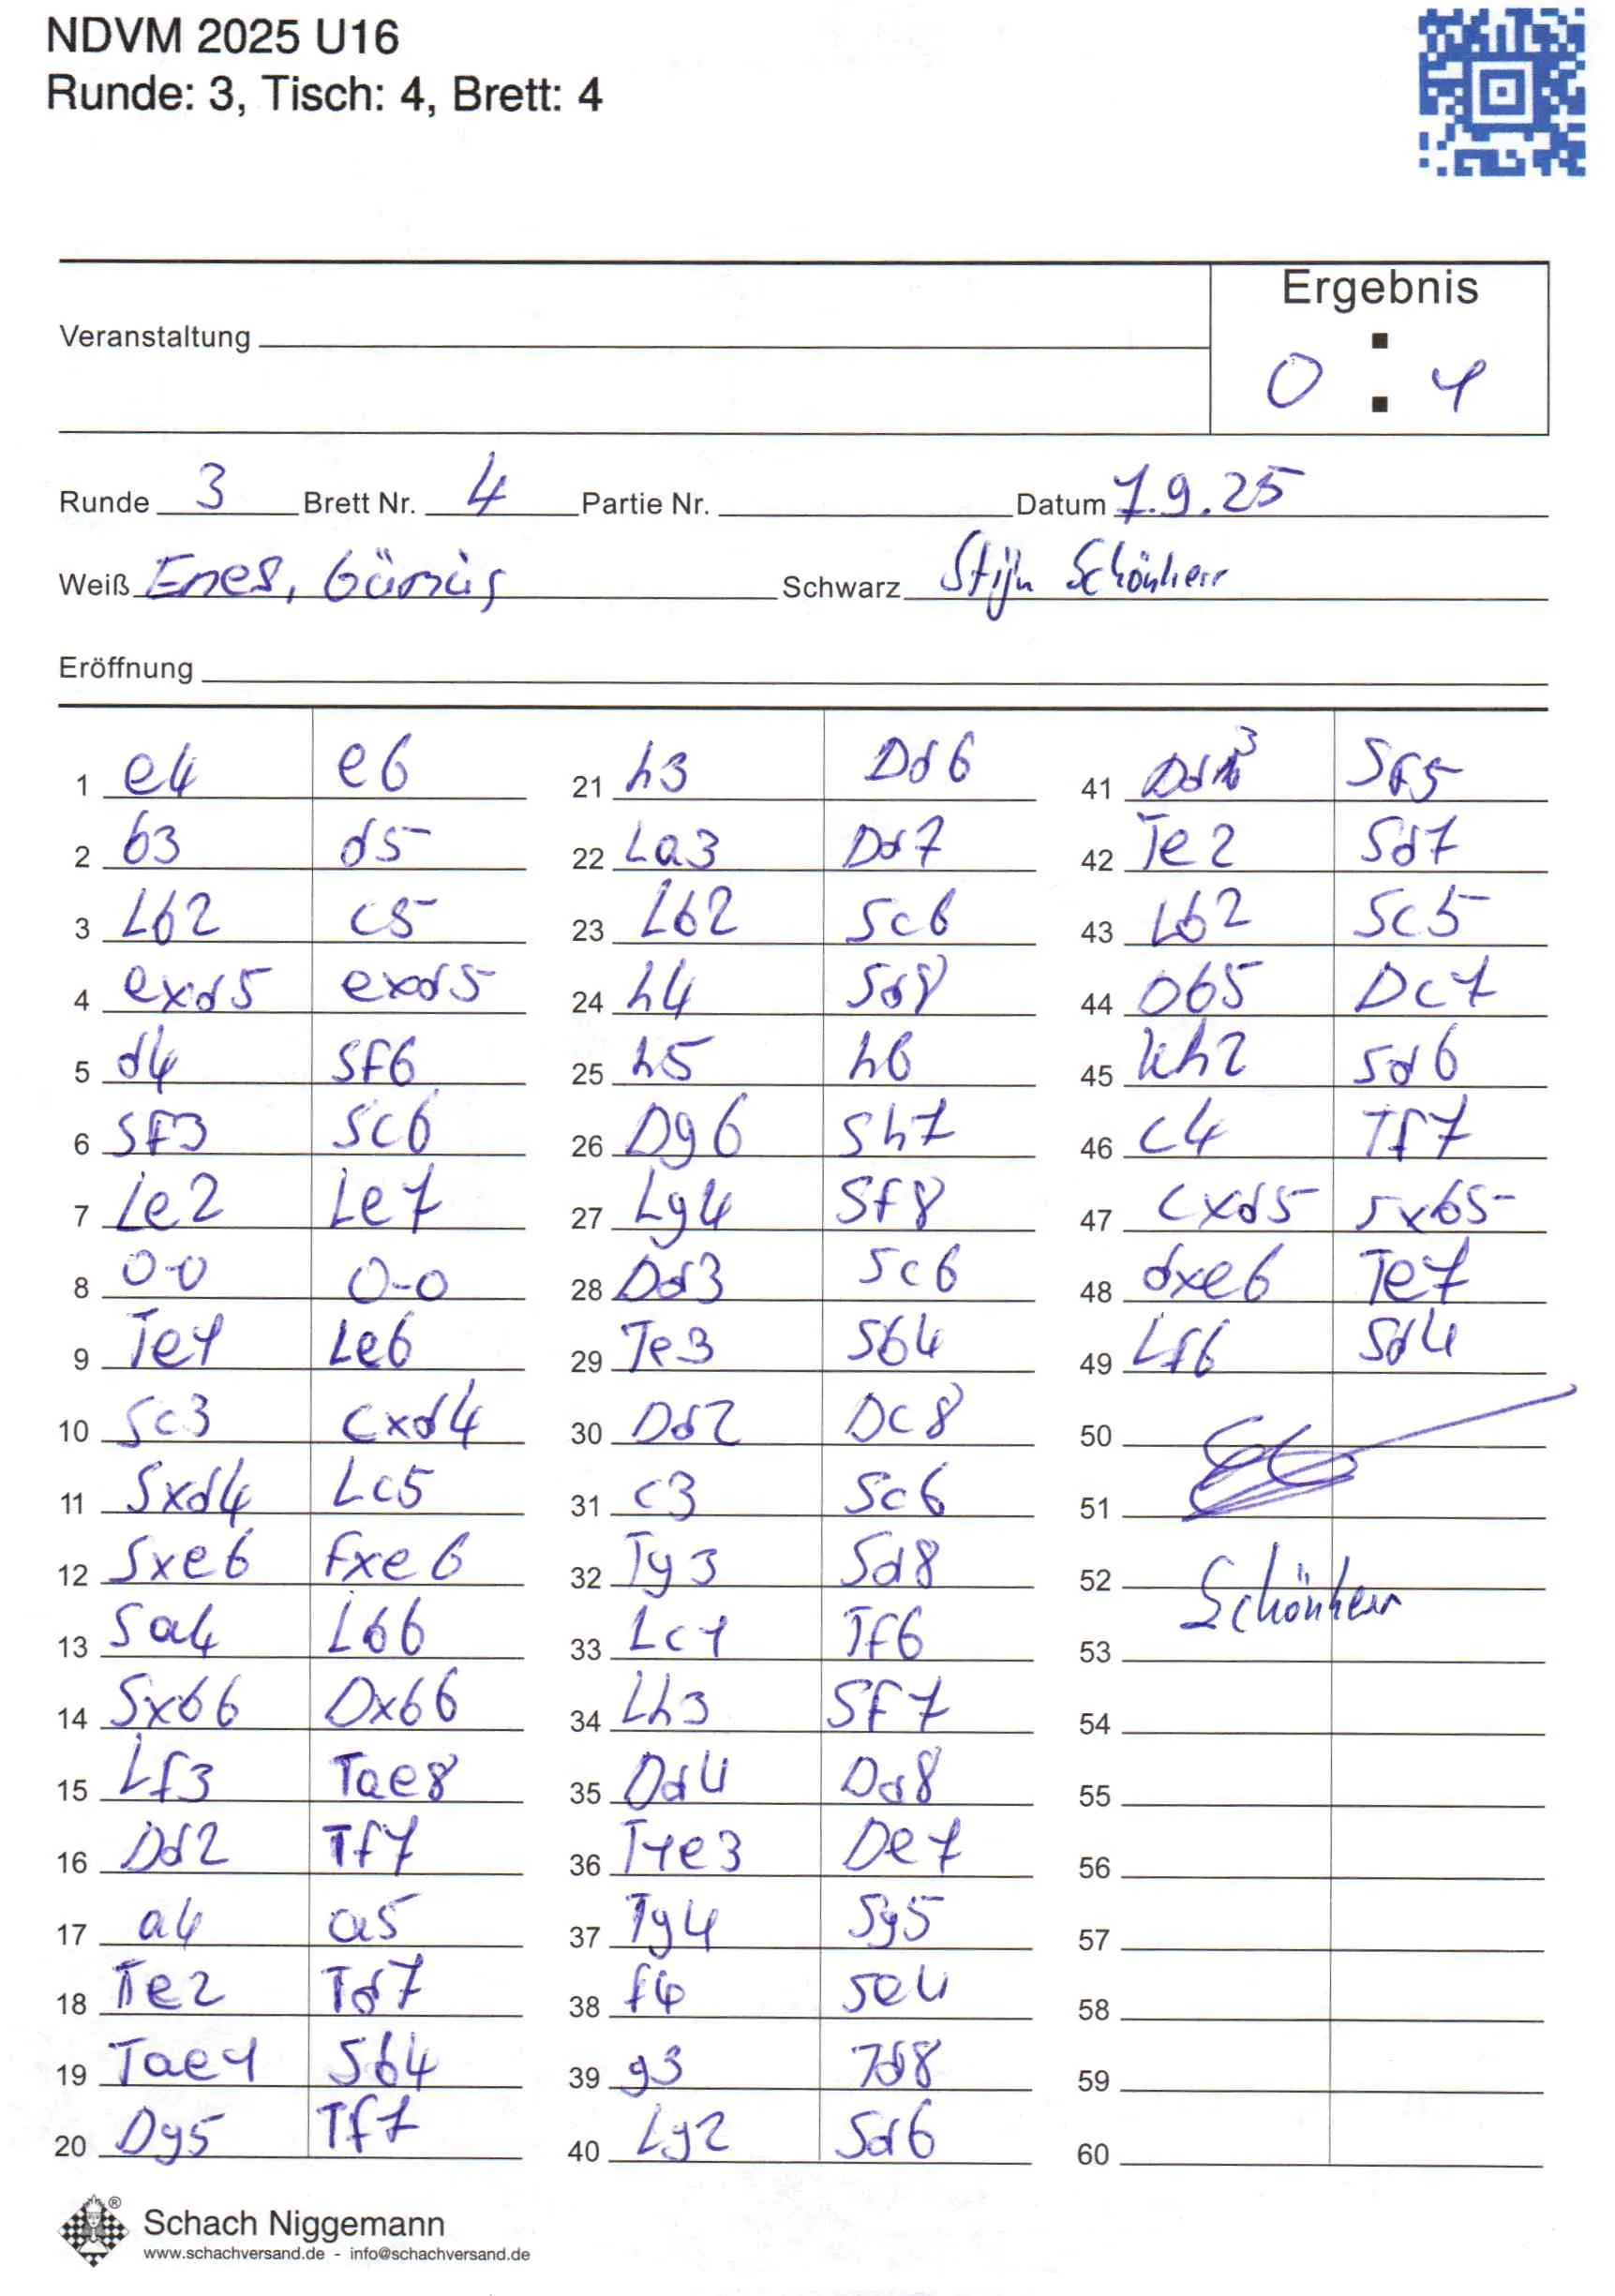 NDVM 2025 U16
Runde: 3, Tisch: 4, Brett: 4
Ergebnis
Veranstaltung
0 : 1
Runde 3 Brett Nr. 4 Partie Nr. Datum 7.9.25
Weiß Enes, Gümüş Schwarz Stijn Schönherr
Eröffnung
1 e4 e6
2 b3 d5
3 Lb2 c5
4 exd5 exd5
5 d4 Sf6
6 Sf3 Sc6
7 Le2 Le7
8 0-0 0-0
9 Te1 Le6
10 Sc3 cxd4
11 Sxd4 Lc5
12 Sxe6 fxe6
13 Sa4 Lb6
14 Sxb6 Dxb6
15 Lf3 Tae8
16 Dd2 Tf7
17 a4 a5
18 Te2 Td7
19 Tae1 Sb4
20 Dg5 Tf7
21 h3 Dd6
22 La3 Dd7
23 Lb2 Sc6
24 h4 Sd8
25 h5 h6
26 Dg6 Sh7
27 Lg4 Sf8
28 Dd3 Sc6
29 Te3 Sb4
30 Dd2 Dc8
31 c3 Sc6
32 Tg3 Sd8
33 Lc1 Tf6
34 Lh3 Sf7
35 Dd4 Dd8
36 T1e3 De7
37 Tg4 Sg5
38 f4 Se4
39 g3 Td8
40 Lg2 Sd6
41 Dd3 Sf5
42 Te2 Sd7
43 Lb2 Sc5
44 Db5 Dc7
45 Kh2 Sd6
46 c4 Tf7
47 cxd5 Sxb5
48 dxe6 Te7
49 Lf6 Sd4
50
51
52 Schönherr
53
54
55
56
57
58
59
60
Schach Niggemann
www.schachversand.de - info@schachversand.de